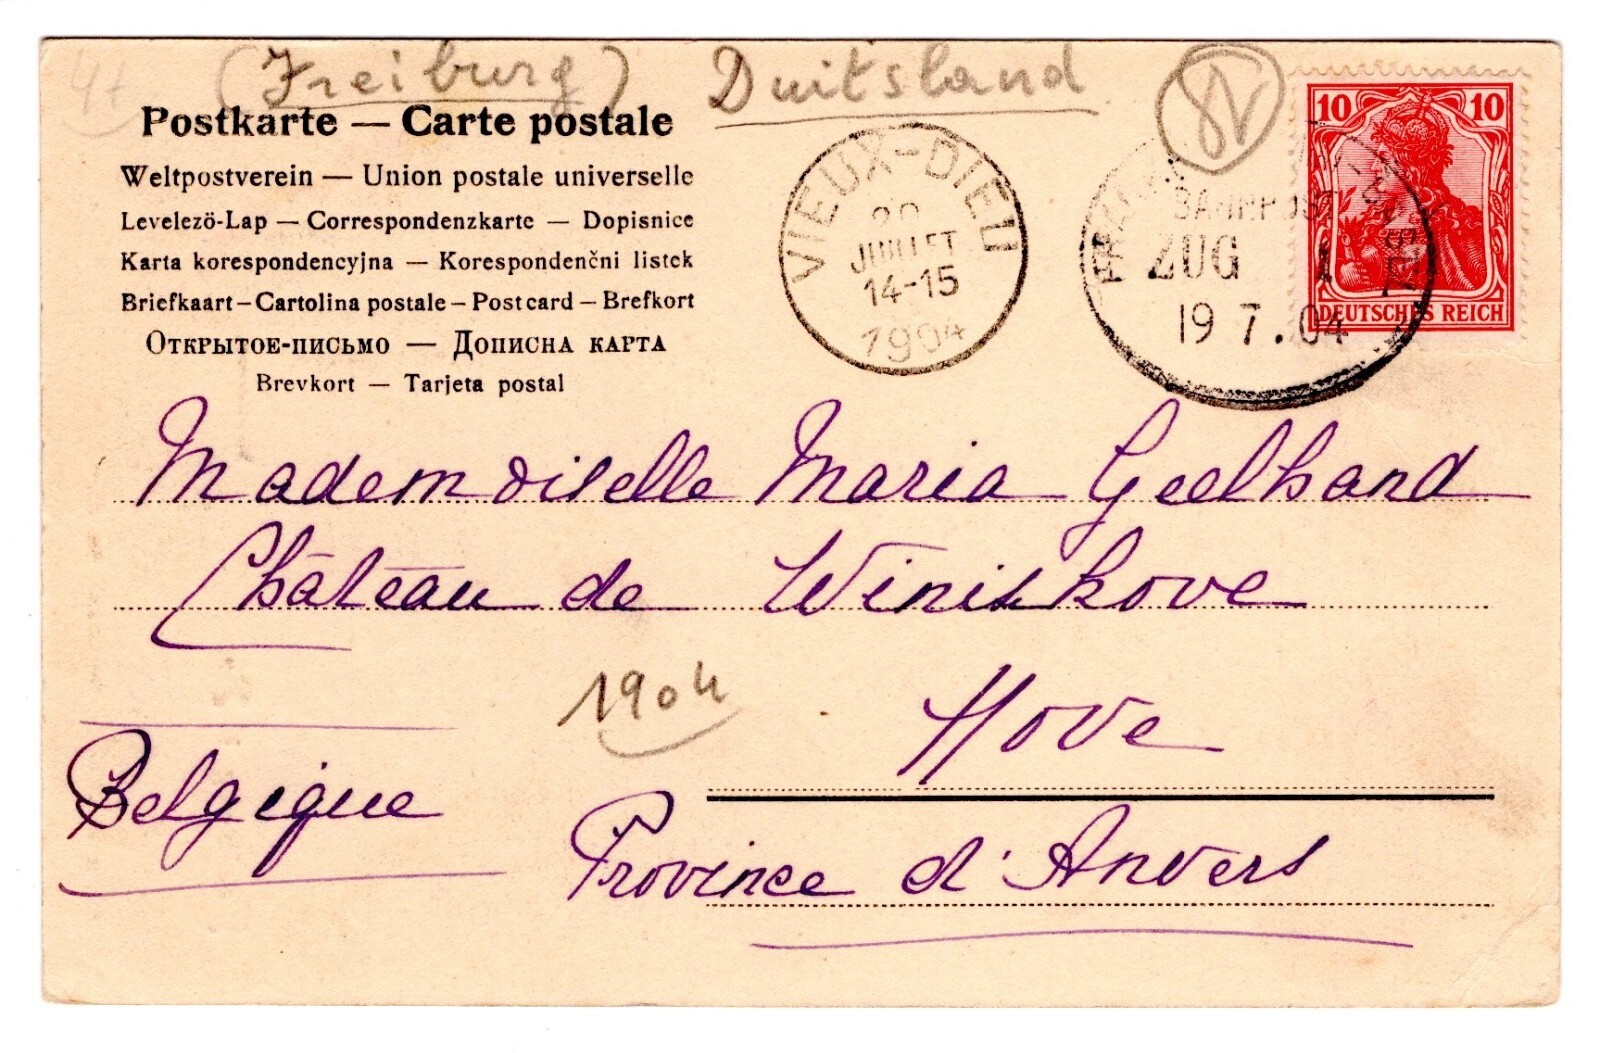 (Freiburg) Duitsland
Postkarte — Carte postale
Weltpostverein — Union postale universelle
Levelezö-Lap — Correspondenzkarte — Dopisnice
Karta korespondencyjna — Korespondenčni listek
Briefkaart — Cartolina postale — Post card — Brefkort
Открытое-письмо — Дописна карта
Brevkort — Tarjeta postal
VIEUX-DIEU
20
JUILLET
14-15
1904
BAHNPOST
ZUG 1
19 7.04
10 10
DEUTSCHES REICH
Mademoiselle Maria Geelhand
Château de Weniskove
Hove
1904
Belgique
Province d'Anvers